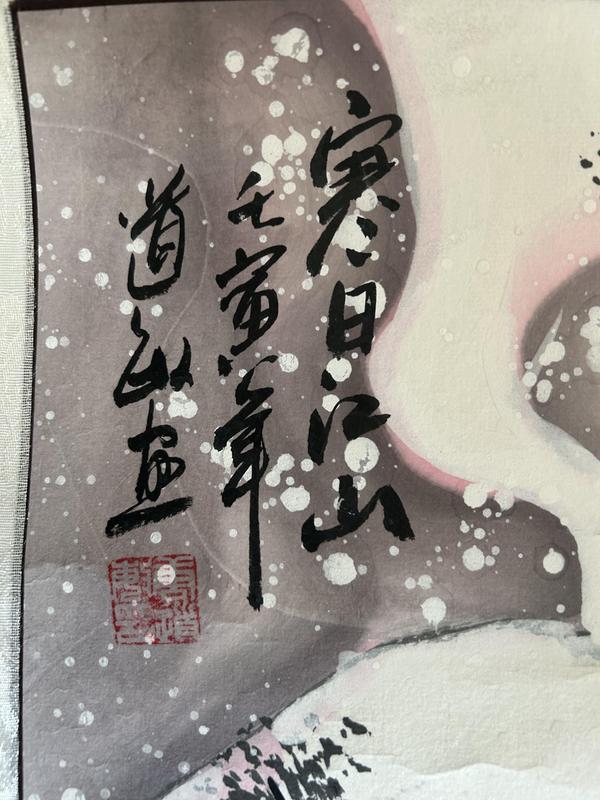 寒日江山
壬寅年
道敏画